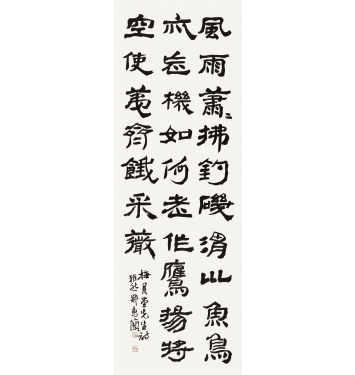 風雨蕭〻拂釣磯渭川魚鳥
亦忘機如何老作鷹揚將
空使夷齊餓采薇
梅月堂先生詩
鄭惠蘭